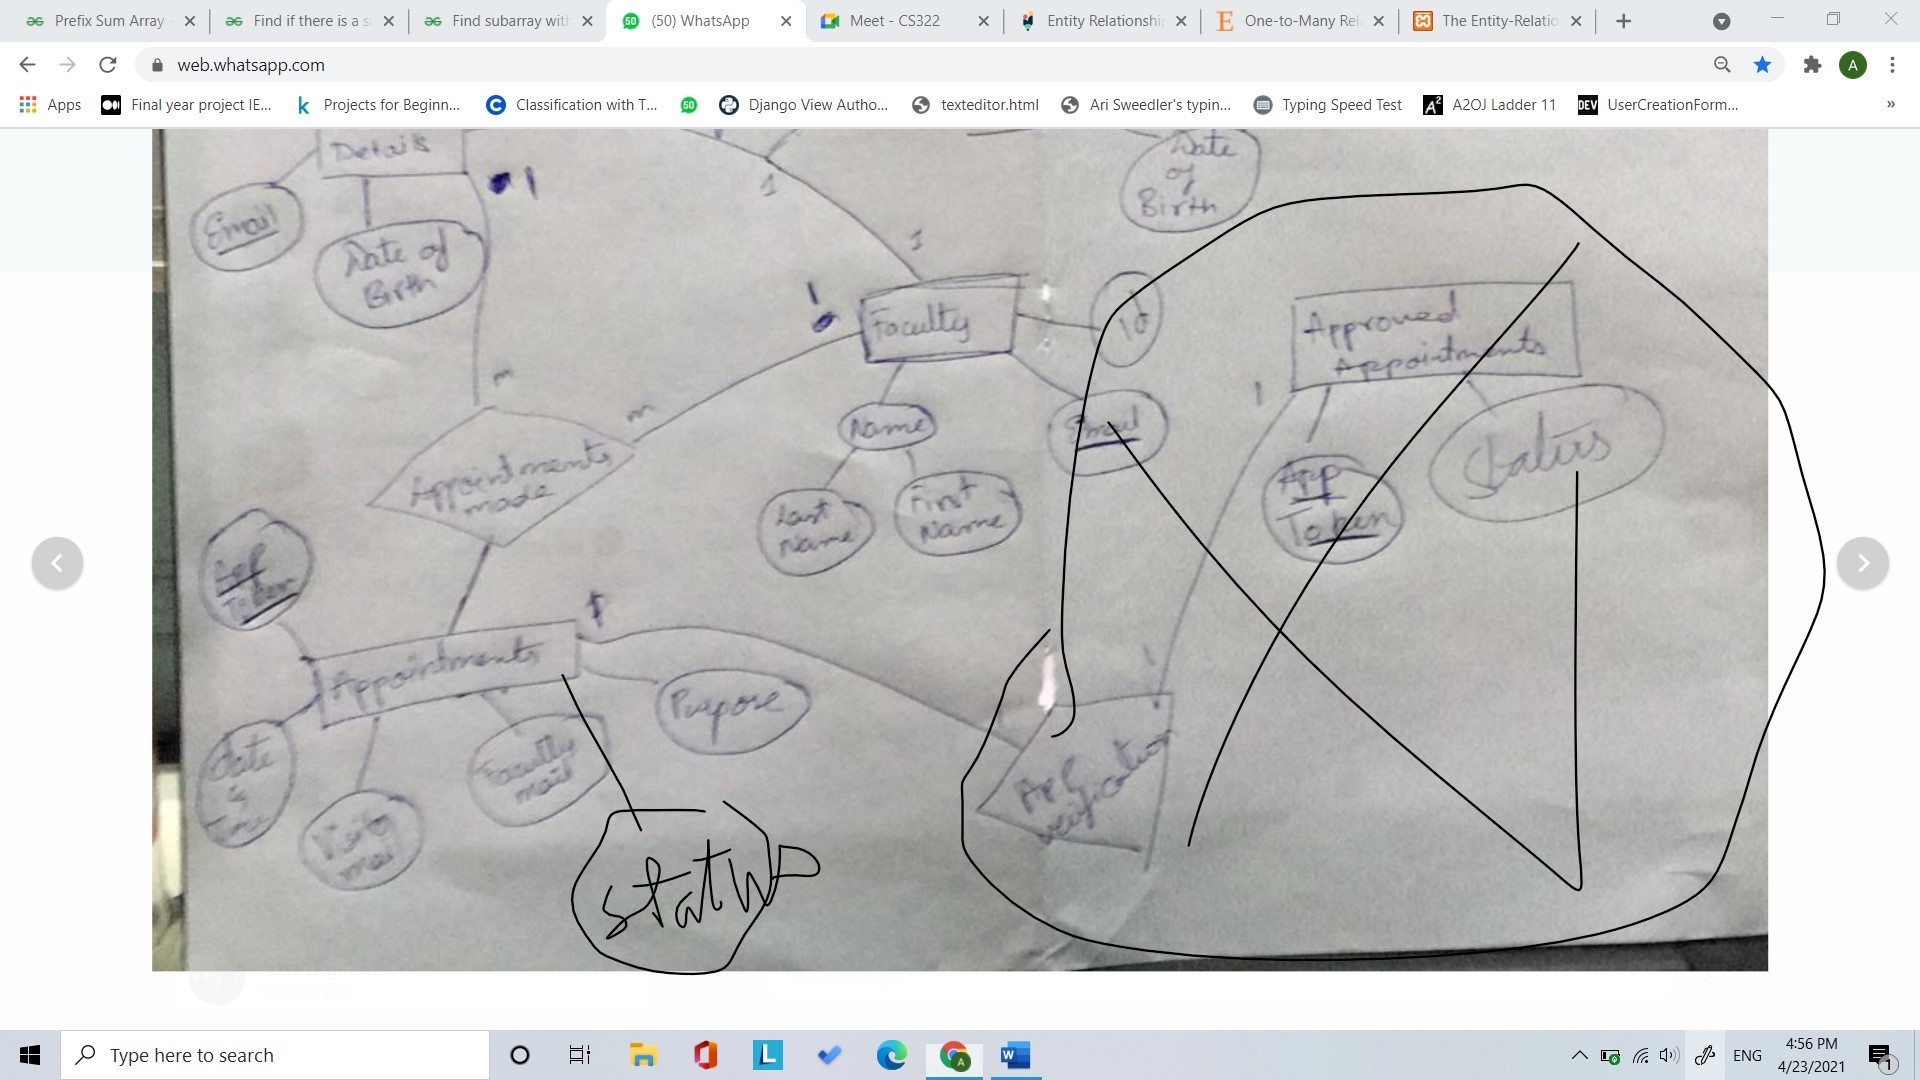 Prefix Sum Array -
Find if there is a s
Find subarray with
(50) WhatsApp
Meet - CS322
Entity Relationship
One-to-Many Rel
The Entity-Relatio
web.whatsapp.com
A
Apps
Final year project IE...
Projects for Beginn...
Classification with T...
Django View Autho...
texteditor.html
Ari Sweedler's typin...
Typing Speed Test
A2OJ Ladder 11
UserCreationForm...
»
Details
1
1
Date
of
Birth
Email
Date of
Birth
1
1
Faculty
Id
Approved
Appointments
m
m
1
Name
Email
Status
Appointments
made
Last
Name
First
Name
App
Token
App
Token
1
Appointments
1
Purpose
Date
&
Time
Faculty
mail
App
verification
Visitor
mail
Status
Type here to search
ENG
4:56 PM
4/23/2021
1